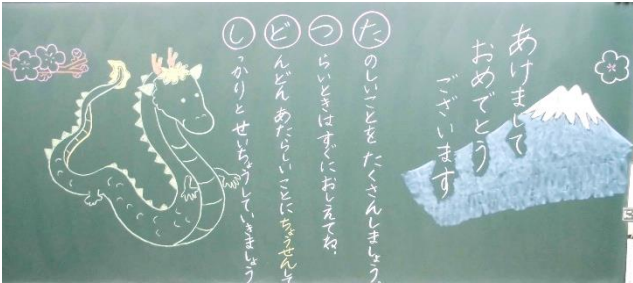 あけまして
おめでとう
ございます
たのしいことを たくさんしましょう。
つらいときはすぐにおしえてね。
どんどん あたらしいことに ちょうせんして
しっかりと せいちょうしていきましょう